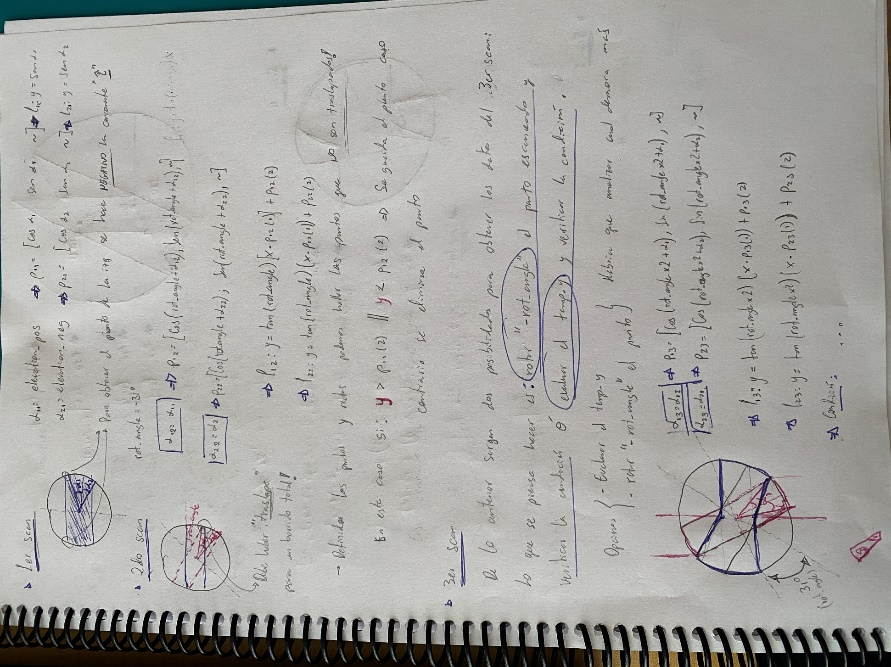 ▸ 1er scan
α11 = elevation_pos ⇒ P11 = [cos α1 sen α1 ~] ⇒ L1: y = sen α1
α21 = elevation_neg ⇒ P21 = [cos α2 sen α2 ~] ⇒ L2: y = sen α2
Para obtener el punto de la izq se hace NEGATIVO la
▸ 2do scan
rot_angle = -31°
α12 = α11 ⇒ P12 = [cos(rot_angle+α12), sen(rot_angle+α12), ~]
α22 = α21 ⇒ P22 = [cos(rot_angle+α22), sen(rot_angle+α22), ~]
Debe haber "traslape" para un barrido total!
⇒ L12: y = tan(rot_angle)(x - P12(1)) + P12(2)
⇒ L22: y = tan(rot_angle)(x - P22(1)) + P22(2)
→ Definidos los puntos y rectas podemos hallar los puntos que NO son traslapados!
En este caso (si: y > P12(2) || y < P22(2) ⇒ Se guarda el punto caso
contrario se elimina el punto
▸ 3er scan
De lo anterior surgen dos posibilidades para obtener los datos del 3er scan:
Lo que se piensa hacer es: rotar "-rot_angle" el punto escaneado y
verificar la condición ó evaluar el temp_y y verificar la condición.
Opciones { - Evaluar el temp_y
- rotar "-rot_angle" el punto } Habría que analizar cual demora mas
α13 = α12 ⇒ P13 = [cos(rot_angle×2+α1), sen(rot_angle×2+α1), ~]
α23 = α22 ⇒ P23 = [cos(rot_angle×2+α2), sen(rot_angle×2+α2), ~]
⇒ L13: y = tan(rot_angle×2)(x - P13(1)) + P13(2)
⇒ L23: y = tan(rot_angle×2)(x - P23(1)) + P23(2)
⇒ Condición: ...
31°
(rot_angle)